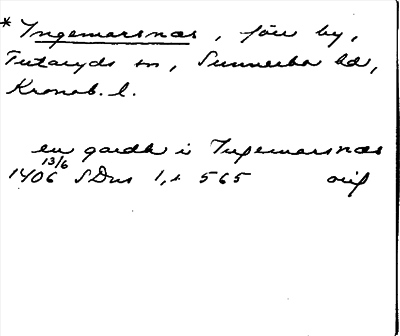 * Ingemarsnäs, förr by,
Tutaryds sn, Sunnerbo hd,
Kronob. l.
en gardh i Ingemarsnæs
1406 13/6 SDns 1, s 565 orig